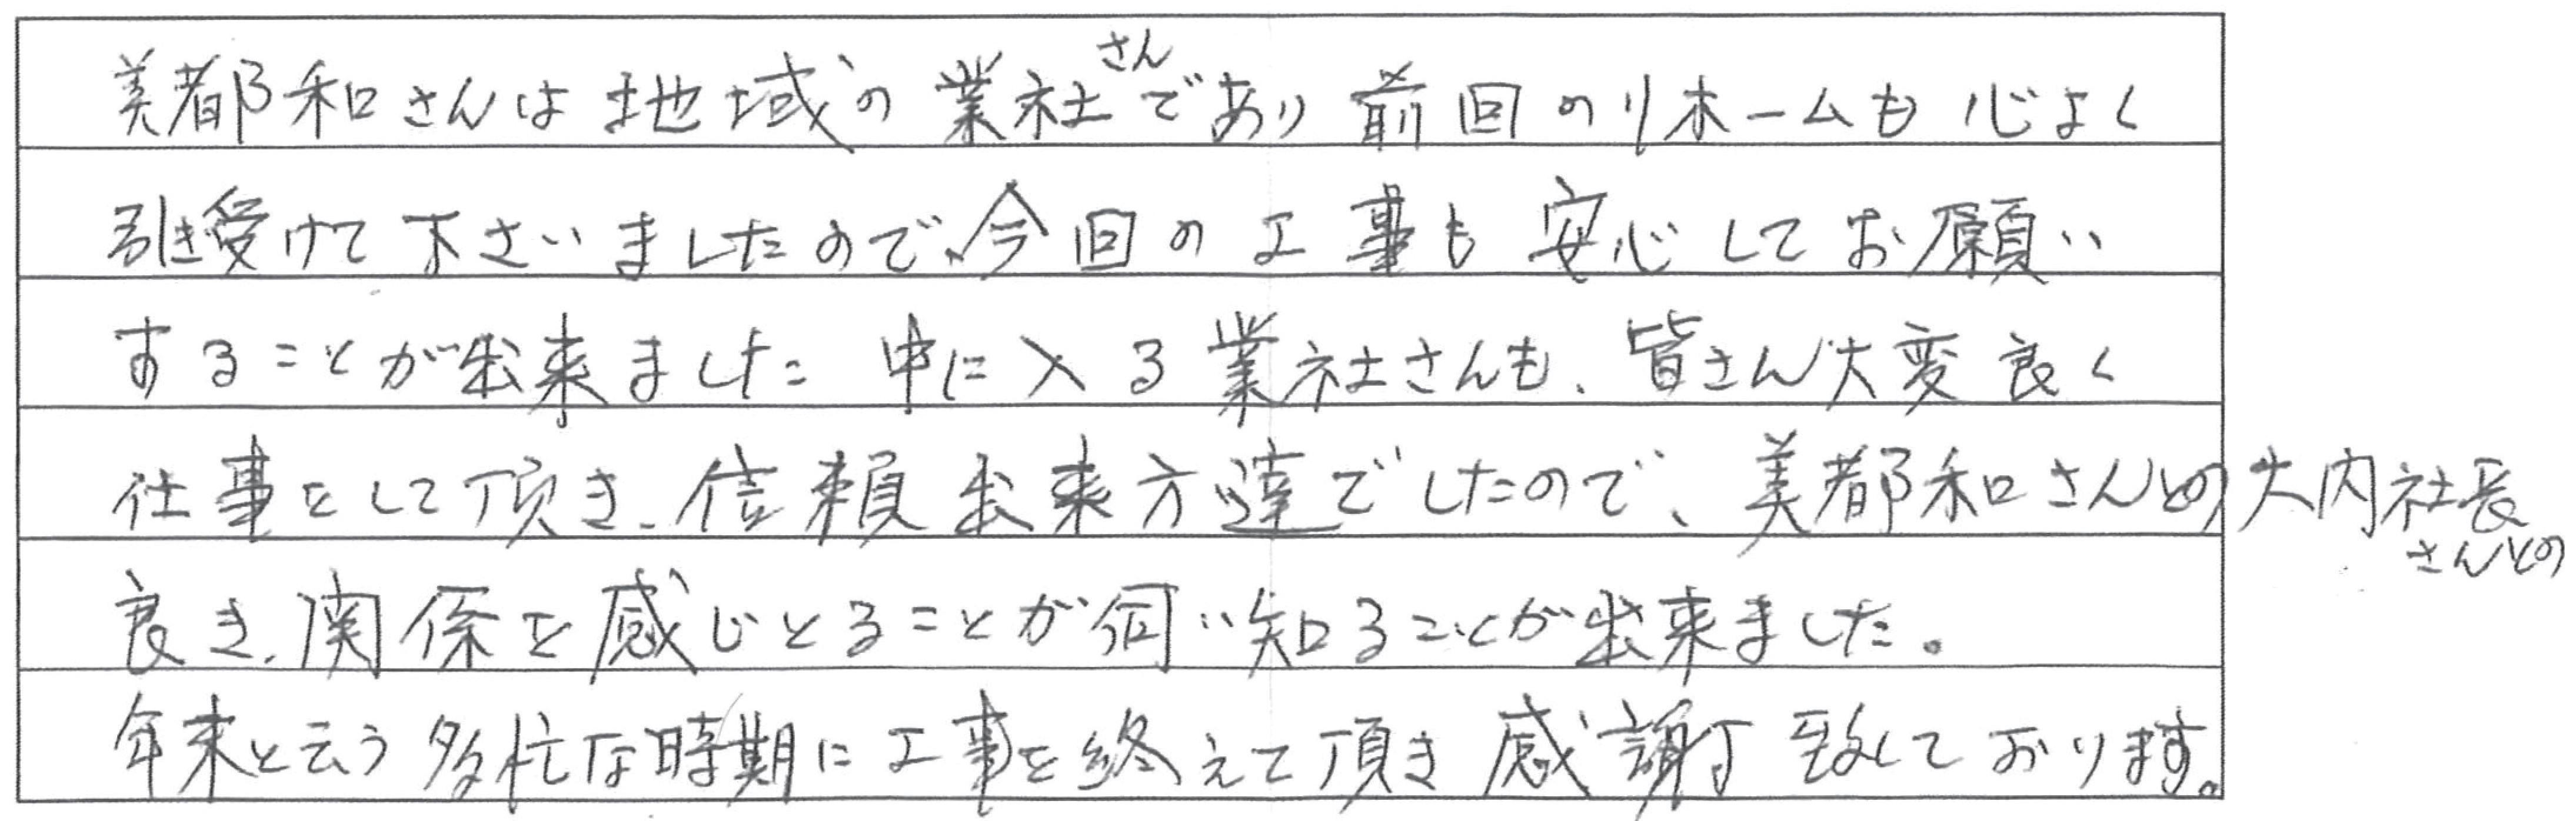 美都和さんは地域の業社さんであり前回のリホームも心よく
引き受けて下さいましたので、今回の工事も安心してお願い
することが出来ました 中に入る業社さんも、皆さん大変良く
仕事をして頂き、信頼出来方達でしたので、美都和さんとの大内社長
さんとの
良き、関係を感じとることが伺い知ることが出来ました。
年末と云う多忙な時期に工事を終えて頂き感謝致しております。